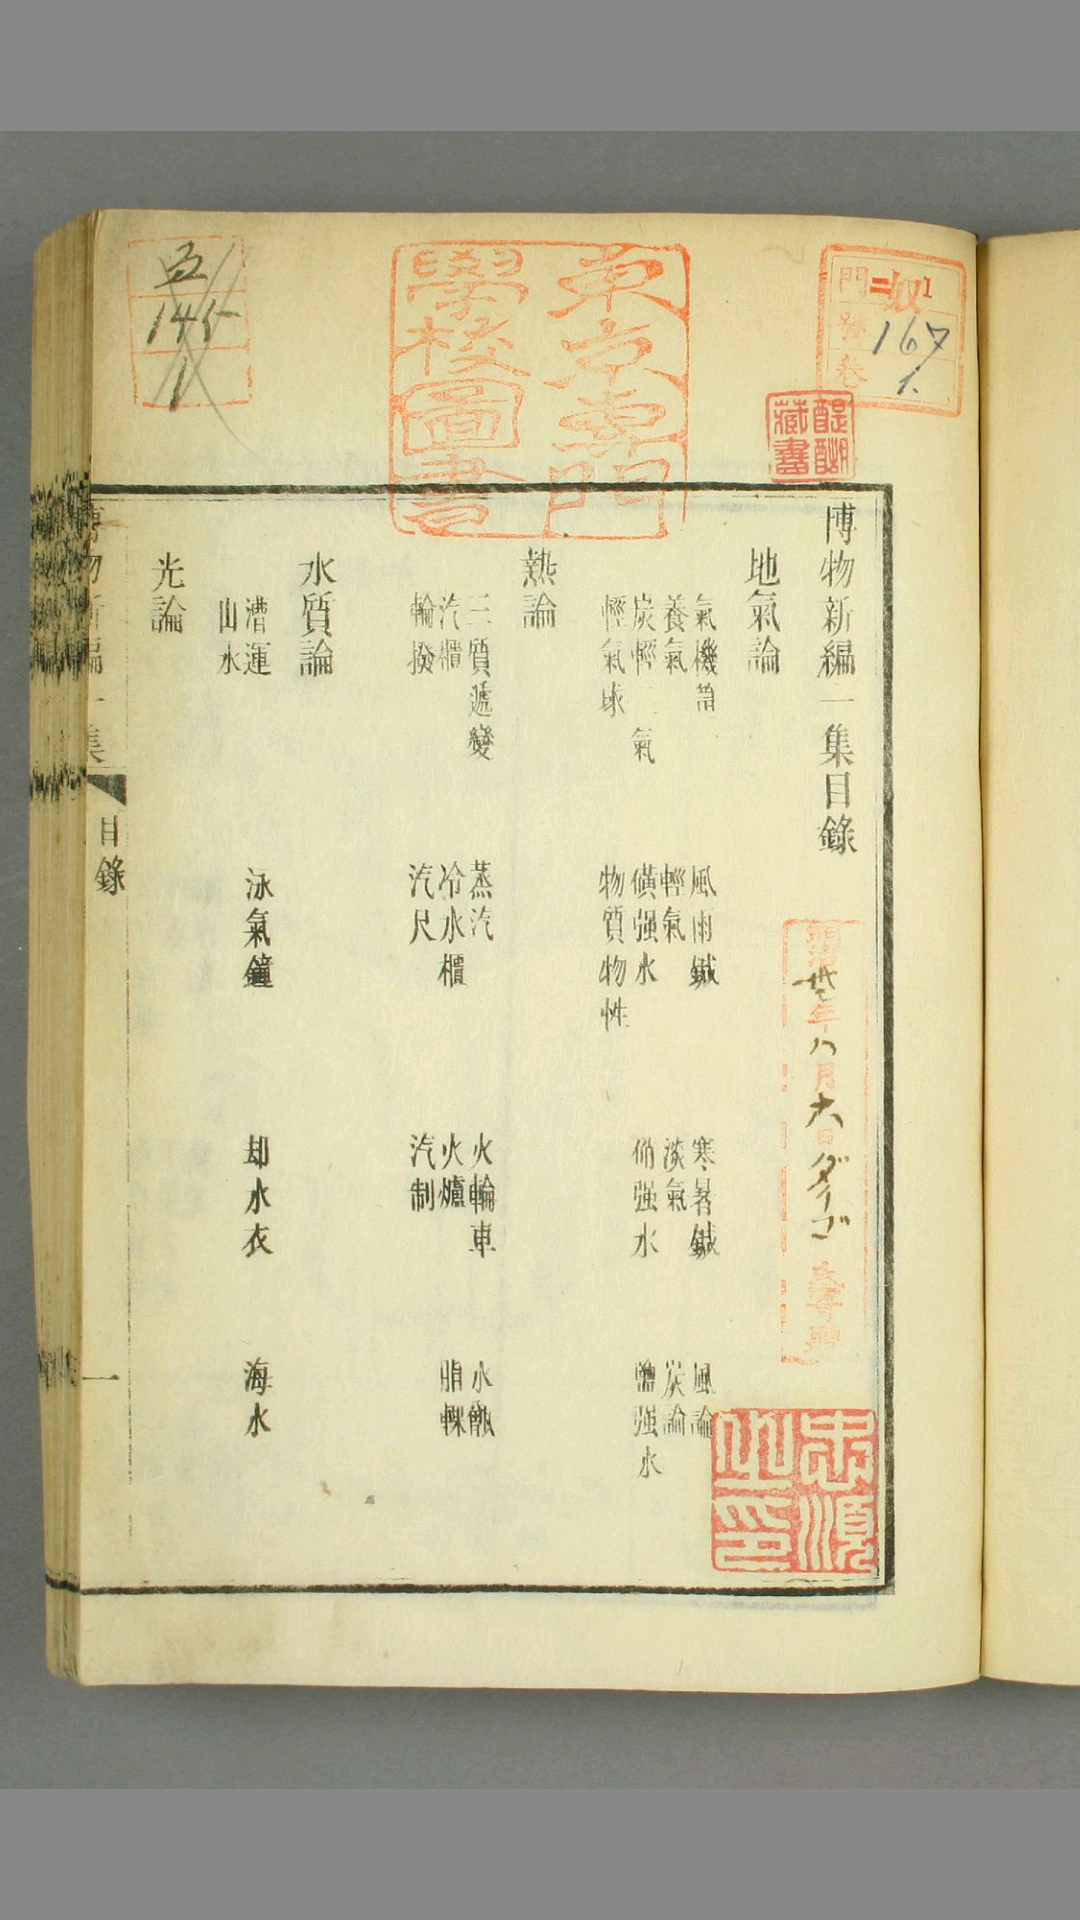 博物新編一集目錄
地氣論
氣機筩 風雨鍼 寒暑鍼 風論
養氣 輕氣 淡氣 炭論
炭輕二氣 磺强水 硝强水 鹽强水
輕氣球 物質物性
熱論
三質遞變 蒸汽 火輪車 水甑
汽櫃 冷水櫃 火爐
輪撥 汽尺 汽制
水質論
漕運 泳氣鐘 却水衣 海水
山水
光論
目錄
一
東京專門
學校圖書
門
號
卷
167
1.
145
1
醍醐
藏書
明治
年八月六日ダイゴ
忠順
之印